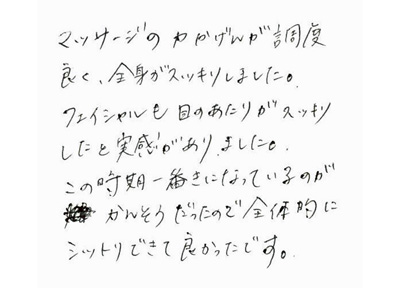 マッサージの力かげんが調度
良く、全身がスッキリしました。
フェイシャルも目のあたりがスッキリ
したと実感がありました。
この時期一番きになっているのが
かんそうだったので全体的に
シットリできて良かったです。